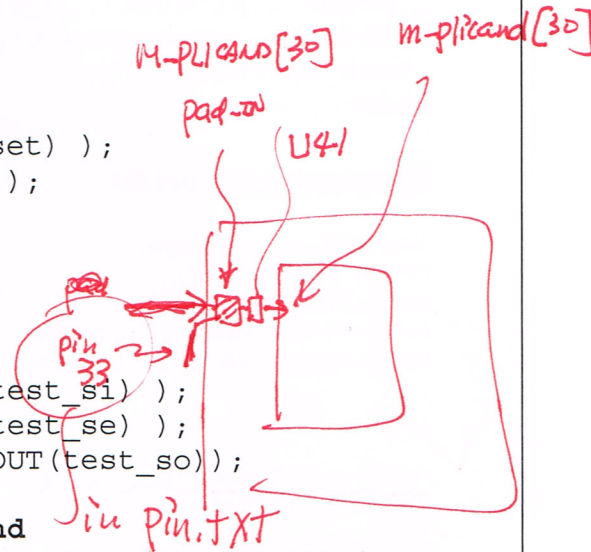 M-PLICAND[30]
m-plicand[30]
pad-IN
U41
set) );
);
pin
33
test_si) );
test_se) );
OUT(test_so));
nd
in pin.txt